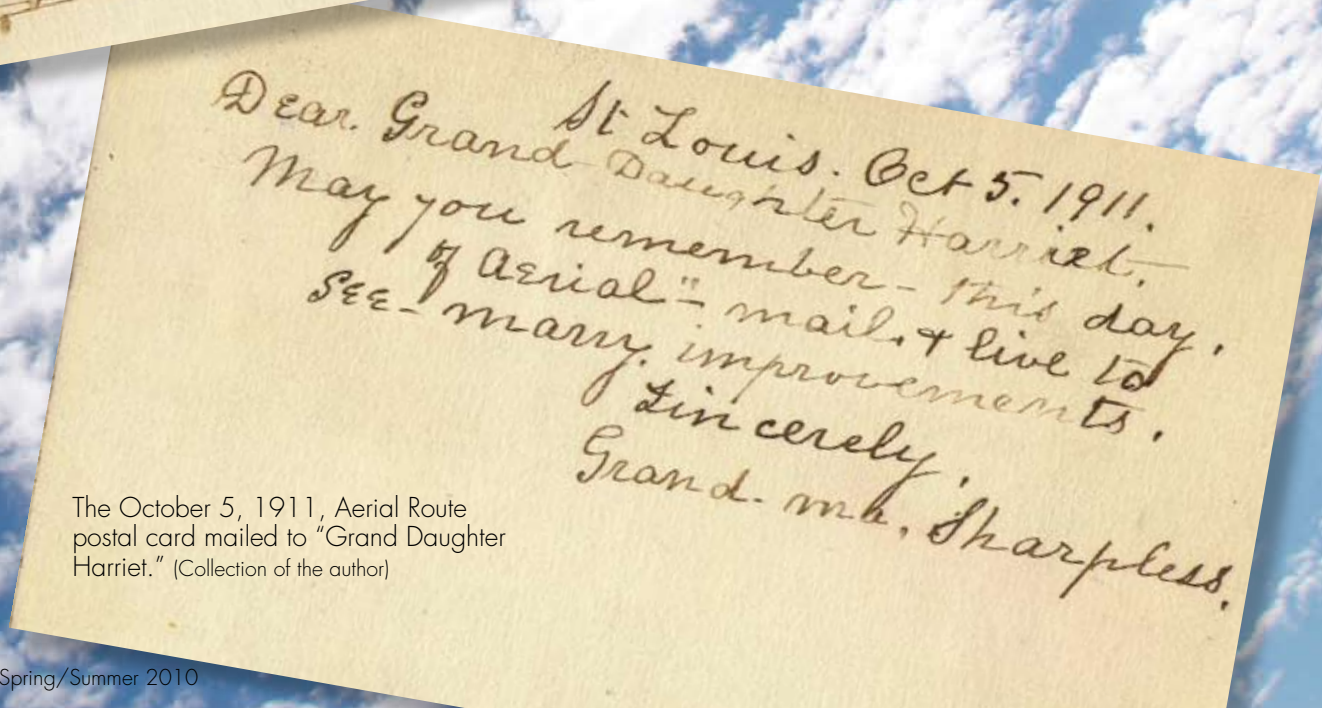 St Louis. Oct 5. 1911.
Dear. Grand Daughter Harriet.
May you remember - this day.
of Aerial"- mail. & live to
see - many. improvements.
Sincerely.
Grand-ma. Sharpless.
The October 5, 1911, Aerial Route
postal card mailed to “Grand Daughter
Harriet.” (Collection of the author)
Spring/Summer 2010